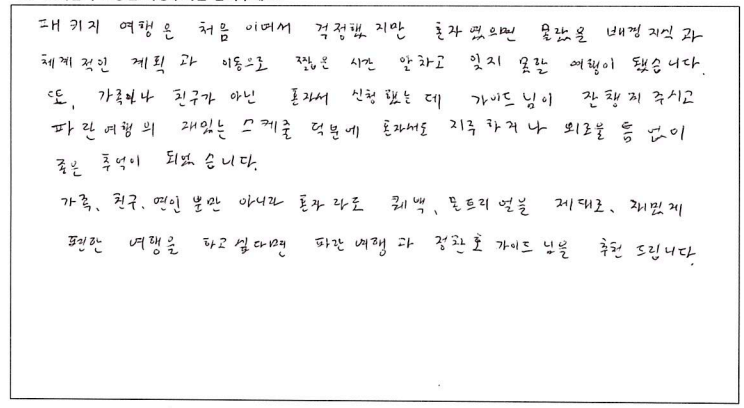 패키지 여행은 처음 이여서 걱정했지만 혼자였으면 몰랐을 배경지식과
체계적인 계획과 이동으로 짧은 시간 알차고 잊지 못할 여행이 됐습니다.
또, 가족이나 친구가 아닌 혼자서 신청했는데 가이드님이 잘챙겨주시고
파란여행의 재밌는 스케줄 덕분에 혼자서도 지루하거나 외로울 틈 없이
좋은 추억이 되었습니다.
가족, 친구, 연인 뿐만 아니라 혼자라도 퀘백, 몬트리얼을 제대로, 재밌게
편한 여행을 하고싶다면 파란여행과 정환호 가이드님을 추천 드립니다.